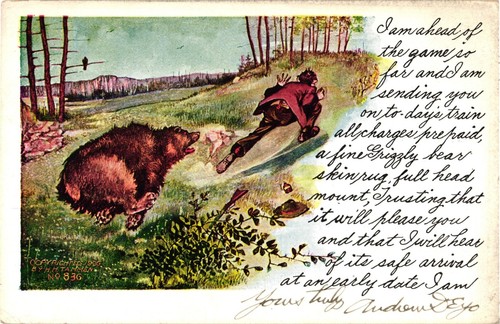 I am ahead of
the game, so
far and I am
sending you
on to-day's train
all charges prepaid,
a fine Grizzly bear
skin rug, full head
mount, Trusting that
it will please you
and that I will hear
of its safe arrival
at an early date I am
Yours truly Andrew D Eyo
COPYRIGHT
No 836